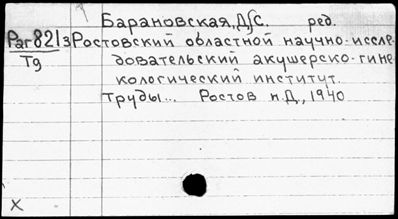 Барановская, Д.С. ред.
Par821з Ростовский областной научно-иссле-
Тд довательский акушерско-гине-
кологический институт.
Труды... Ростов н.Д., 1940
X